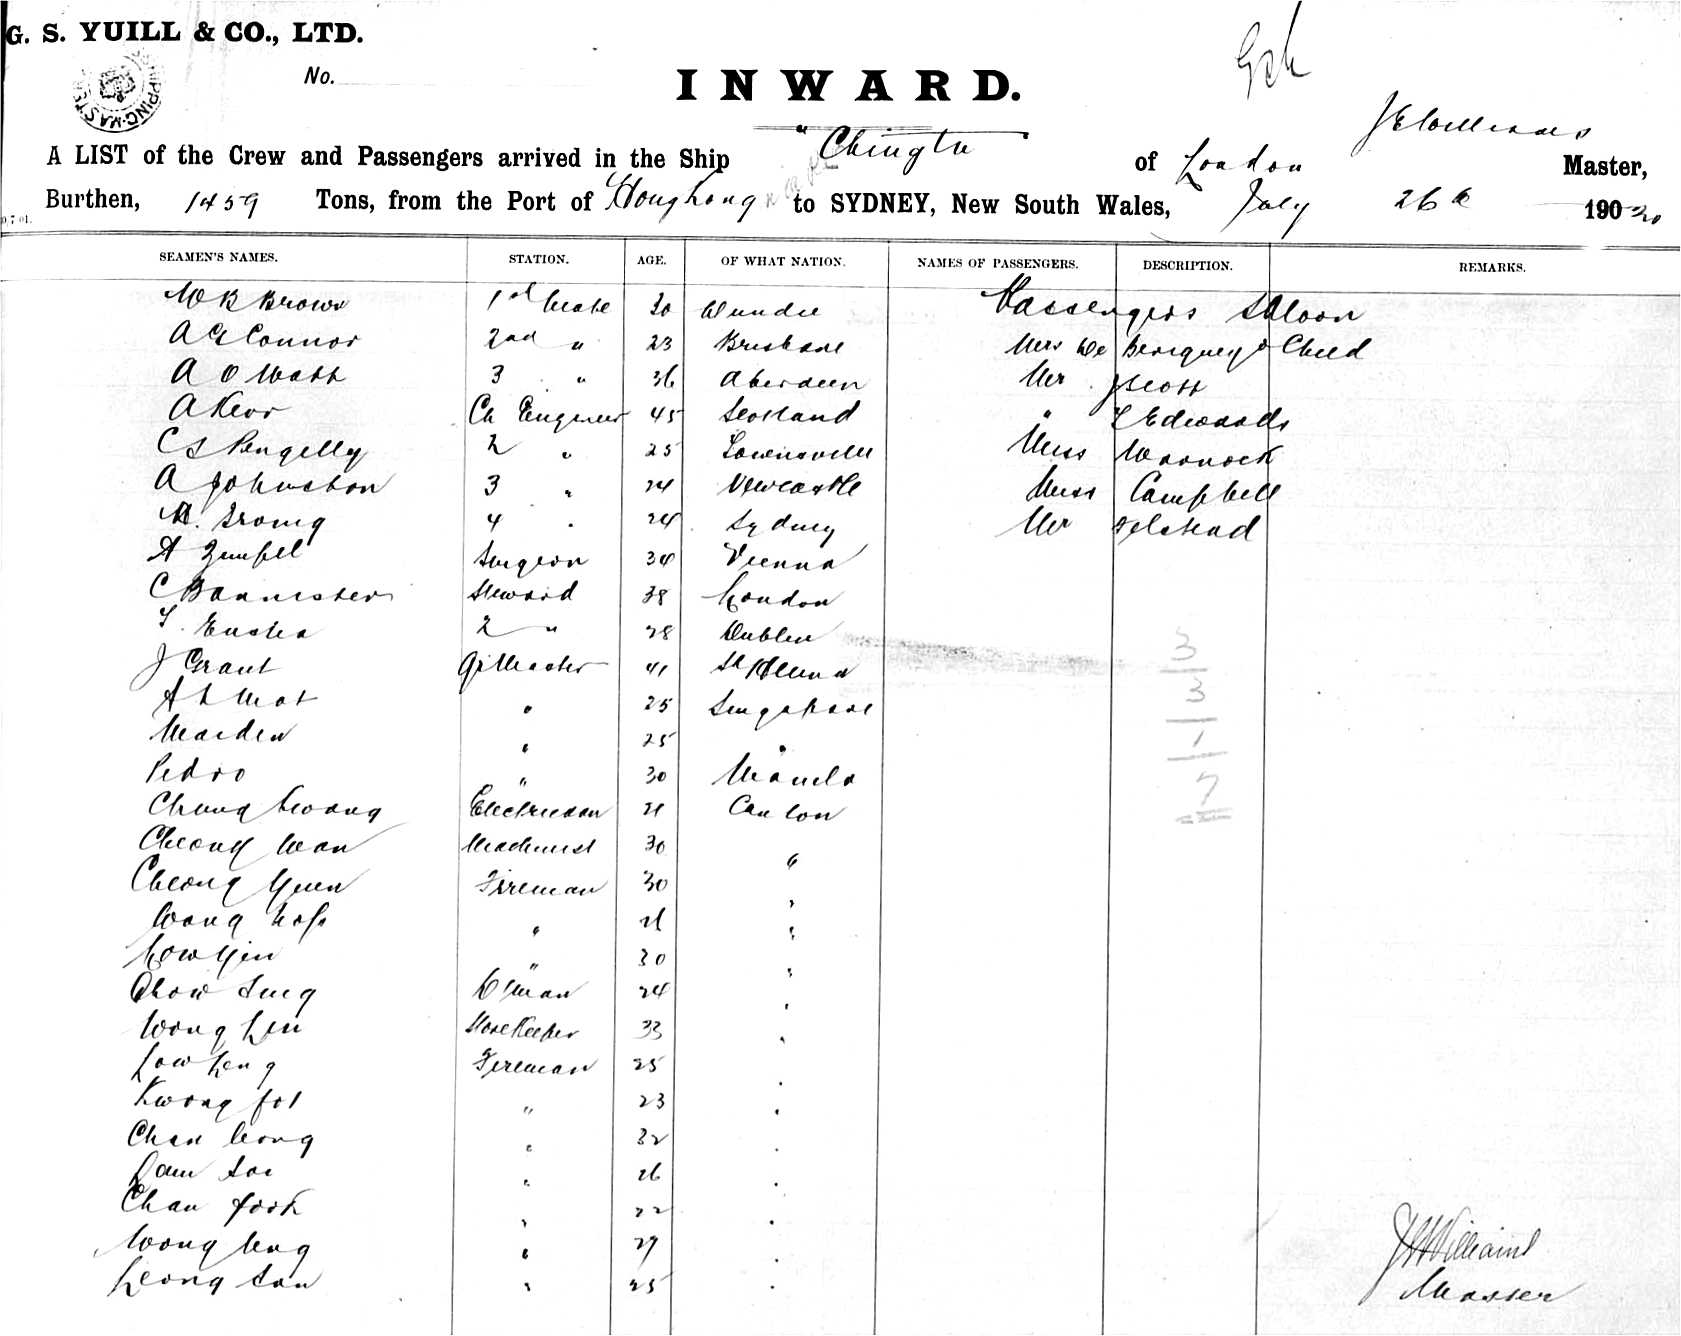 G. S. YUILL & CO., LTD.
No.
INWARD.
J E Williams
A LIST of the Crew and Passengers arrived in the Ship "Chingtu" of London Master,
Burthen, 1459 Tons, from the Port of Hong Kong to SYDNEY, New South Wales, July 26th 190
SEAMEN'S NAMES. STATION. AGE. OF WHAT NATION. NAMES OF PASSENGERS. DESCRIPTION. REMARKS.
W B Brown 1st Mate 30 Dundee Passengers Saloon
A G Connor 2nd " 23 Brisbane Mrs De & Child
A O Watt 3 " 36 Aberdeen Mr J Scott
A Kerr Ch Engineer 45 Scotland " Edwards
C S Pengelly 2 " 25 Townsville Miss Warnock
A Johnston 3 " 24 Newcastle Miss Campbell
4 " 24 Sydney Mr
A Surgeon 34 Vienna
C Bannister Steward 38 London
2 " 28 Dublin
J Grant Qr Master 41 St Helena
Ah Mat " 25 Singapore
Maiden " 25 "
Pedro " 30 Manila
Chung Electrician 21 Canton
Cheong Wan Machinist 30 "
Cheong Yuen Fireman 30 "
Wong " 21 "
Low Yin " 30 "
Chow Sing 24 "
Wong Lin Store Keeper 33 "
Low Leng Fireman 25 "
Kwong Fot " 23 "
Chan Leong " 32 "
Lam Soi " 26 "
Chan Fook " 22 "
Wong " 27 "
Leong San " 25 "
3
3
1
7
Williams
Master